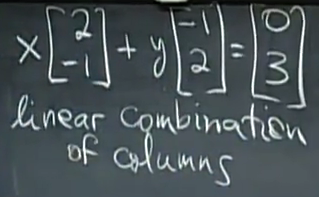 x[2 -1] + y[-1 2] = [0 3]
linear combination
of columns